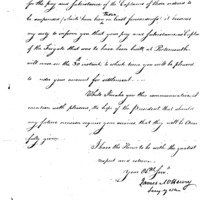 for the pay and Subsistence of the Captains of those ordered to
be suspended, (which have been on that furnished) it becomes
my duty to inform you that your pay and Subsistence as Captain
of the Frigate that was to have been built at Portsmouth
will cease on the 30 instant, to which time you will be pleased
to render your account for settlement.
While I make you this communication, I
mention with pleasure, the hope of the President that should
any future occasion require your services that they will be cheer-
fully given.
I have the Honor to be with the greatest
respect and esteem
Your Obt. Serv.
James McHenry
Secy of War